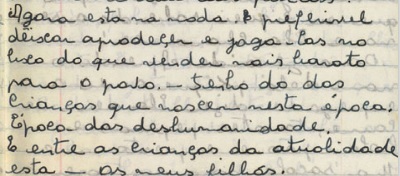 Agora esta na moda é preferivel
deixar apodeçer e joga-las no
lixo do que vender mais barato
para o povo. — Tenho dó das
crianças que nascem nesta época.
Época das deshumanidade.
E entre as crianças da atualidade
esta — os meus filhos.